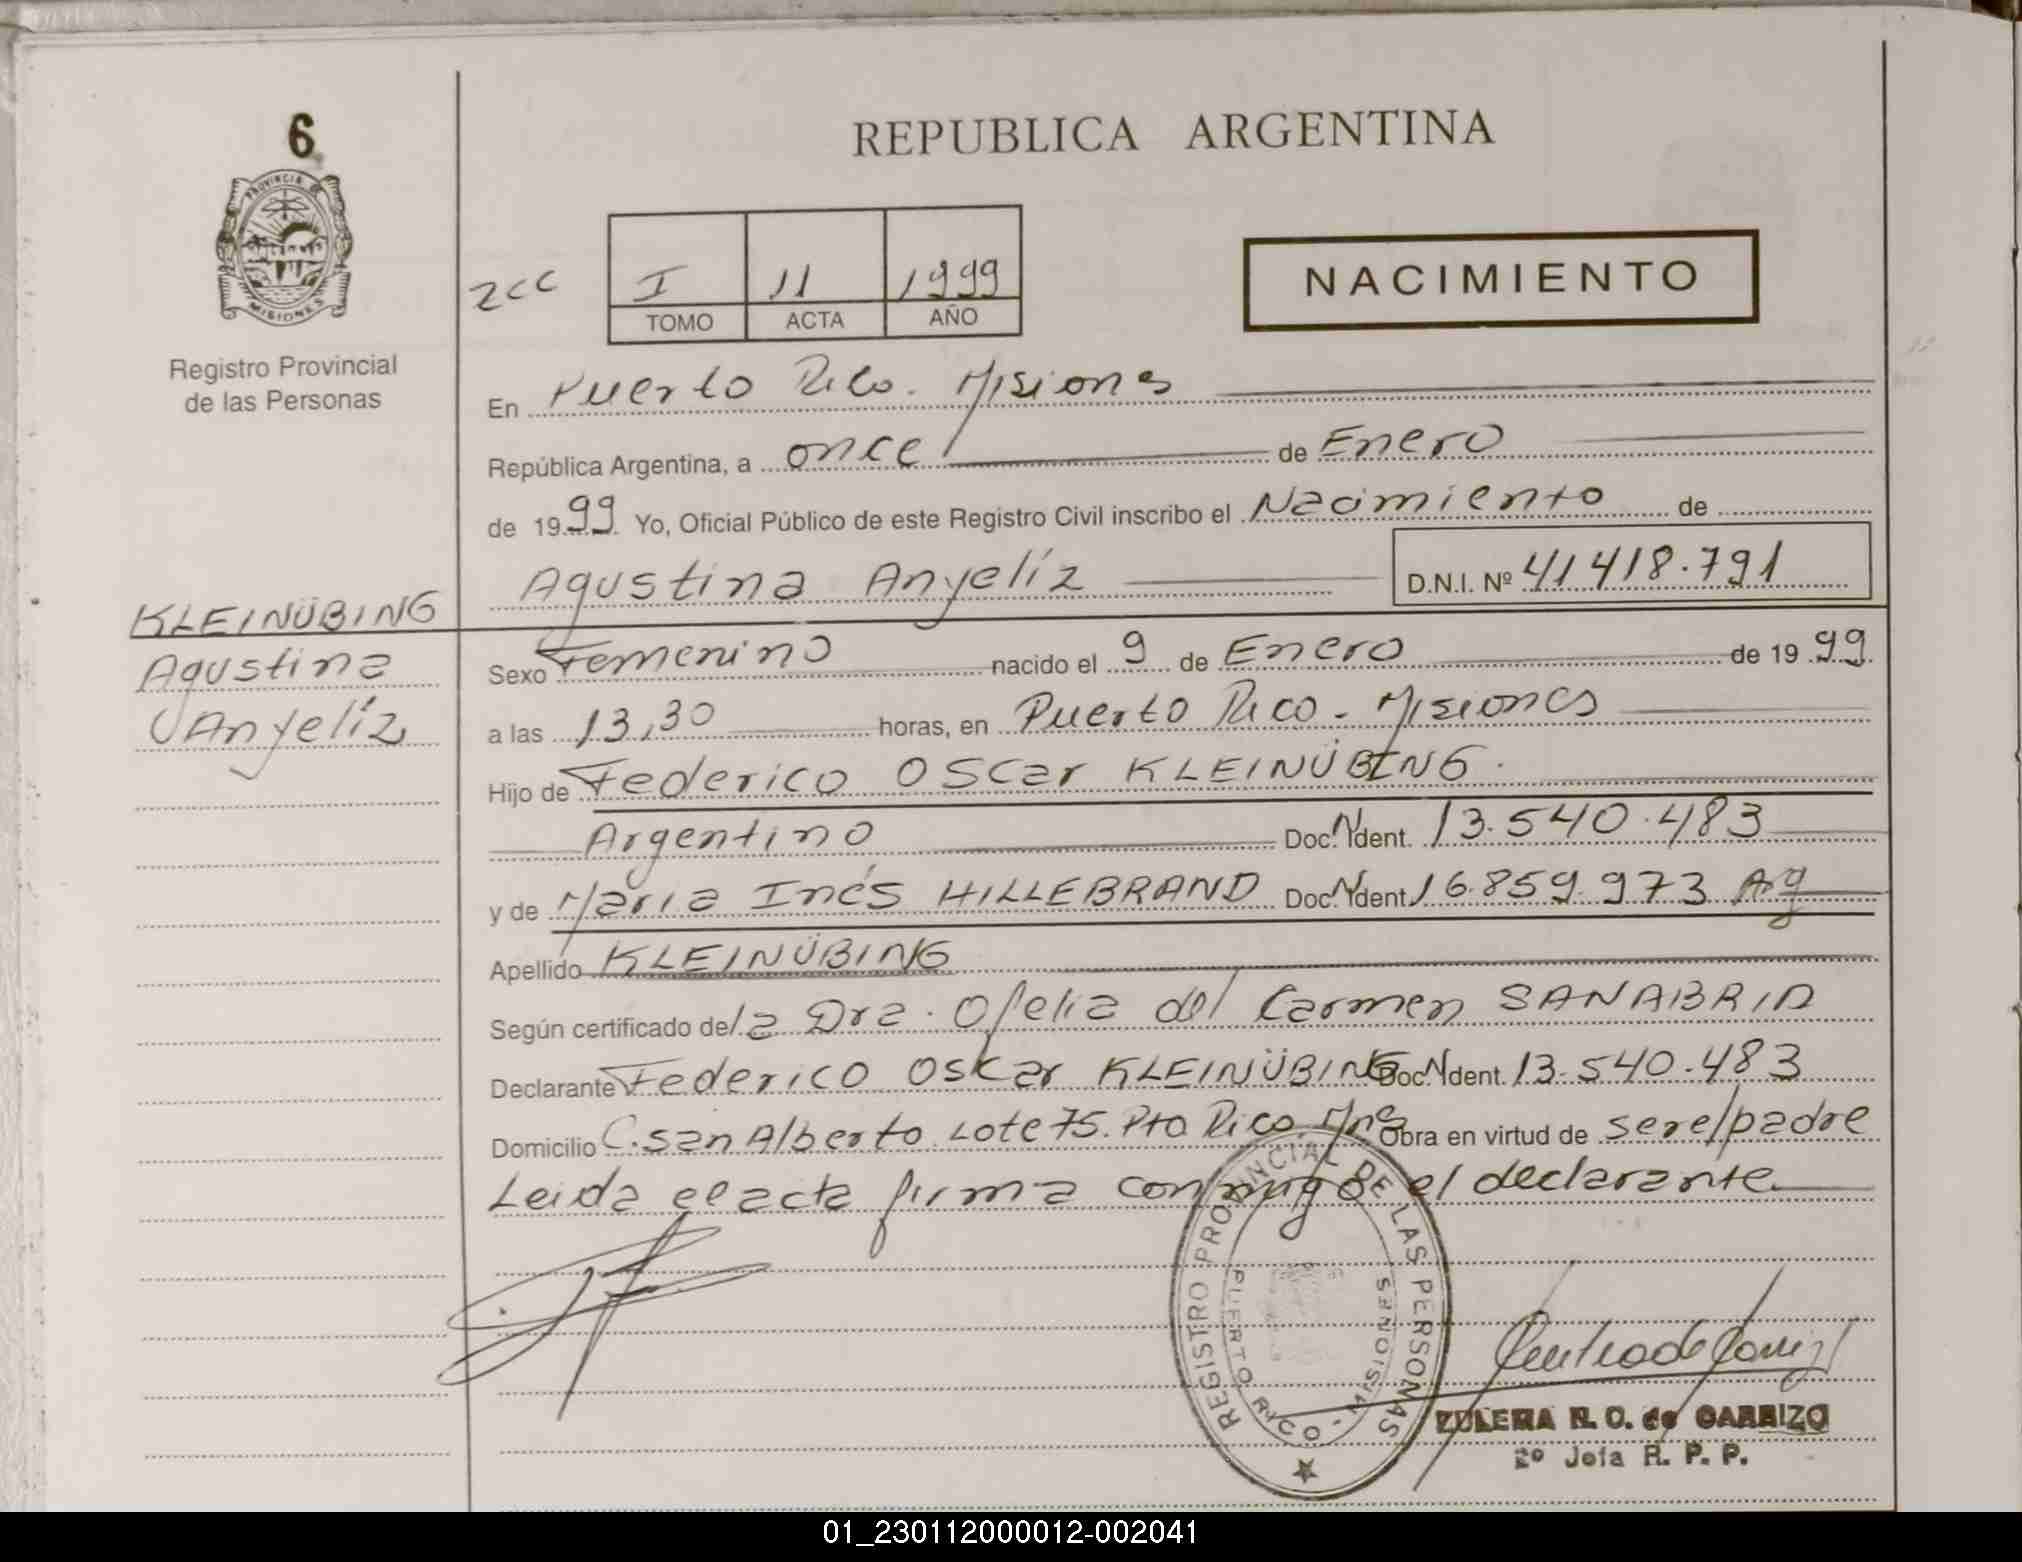 6
REPUBLICA ARGENTINA
PROVINCIA DE
MISIONES
Registro Provincial
de las Personas
zcc
I 11 1999
TOMO ACTA AÑO
NACIMIENTO
En Puerto Rico. Misiones
República Argentina, a once de Enero
de 1999 Yo, Oficial Público de este Registro Civil inscribo el Nacimiento de
Agustina Anyelíz D.N.I. Nº 41418.791
KLEINÜBING
Agustina
Anyelíz
Sexo Femenino nacido el 9 de Enero de 1999
a las 13,30 horas, en Puerto Rico - Misiones
Hijo de Federico Oscar KLEINÜBING.
Argentino Doc. N Ident. 13.540.483
y de Maria Inés HILLEBRAND Doc. N Ident 16.859.973 Arg
Apellido KLEINÜBING
Según certificado de la Dra. Ofelia del Carmen SANABRIA
Declarante Federico Oskar KLEINÜBING Doc. N Ident. 13.540.483
Domicilio C. San Alberto Lote 75. Pto Rico. Mnes Obra en virtud de ser el padre
Leida el acta firma conmigo el declarante
REGISTRO PROVINCIAL DE LAS PERSONAS
PUERTO RICO - MISIONES
ZULEMA R. O. de CARRIZO
2º Jefa R. P. P.
01_230112000012-002041